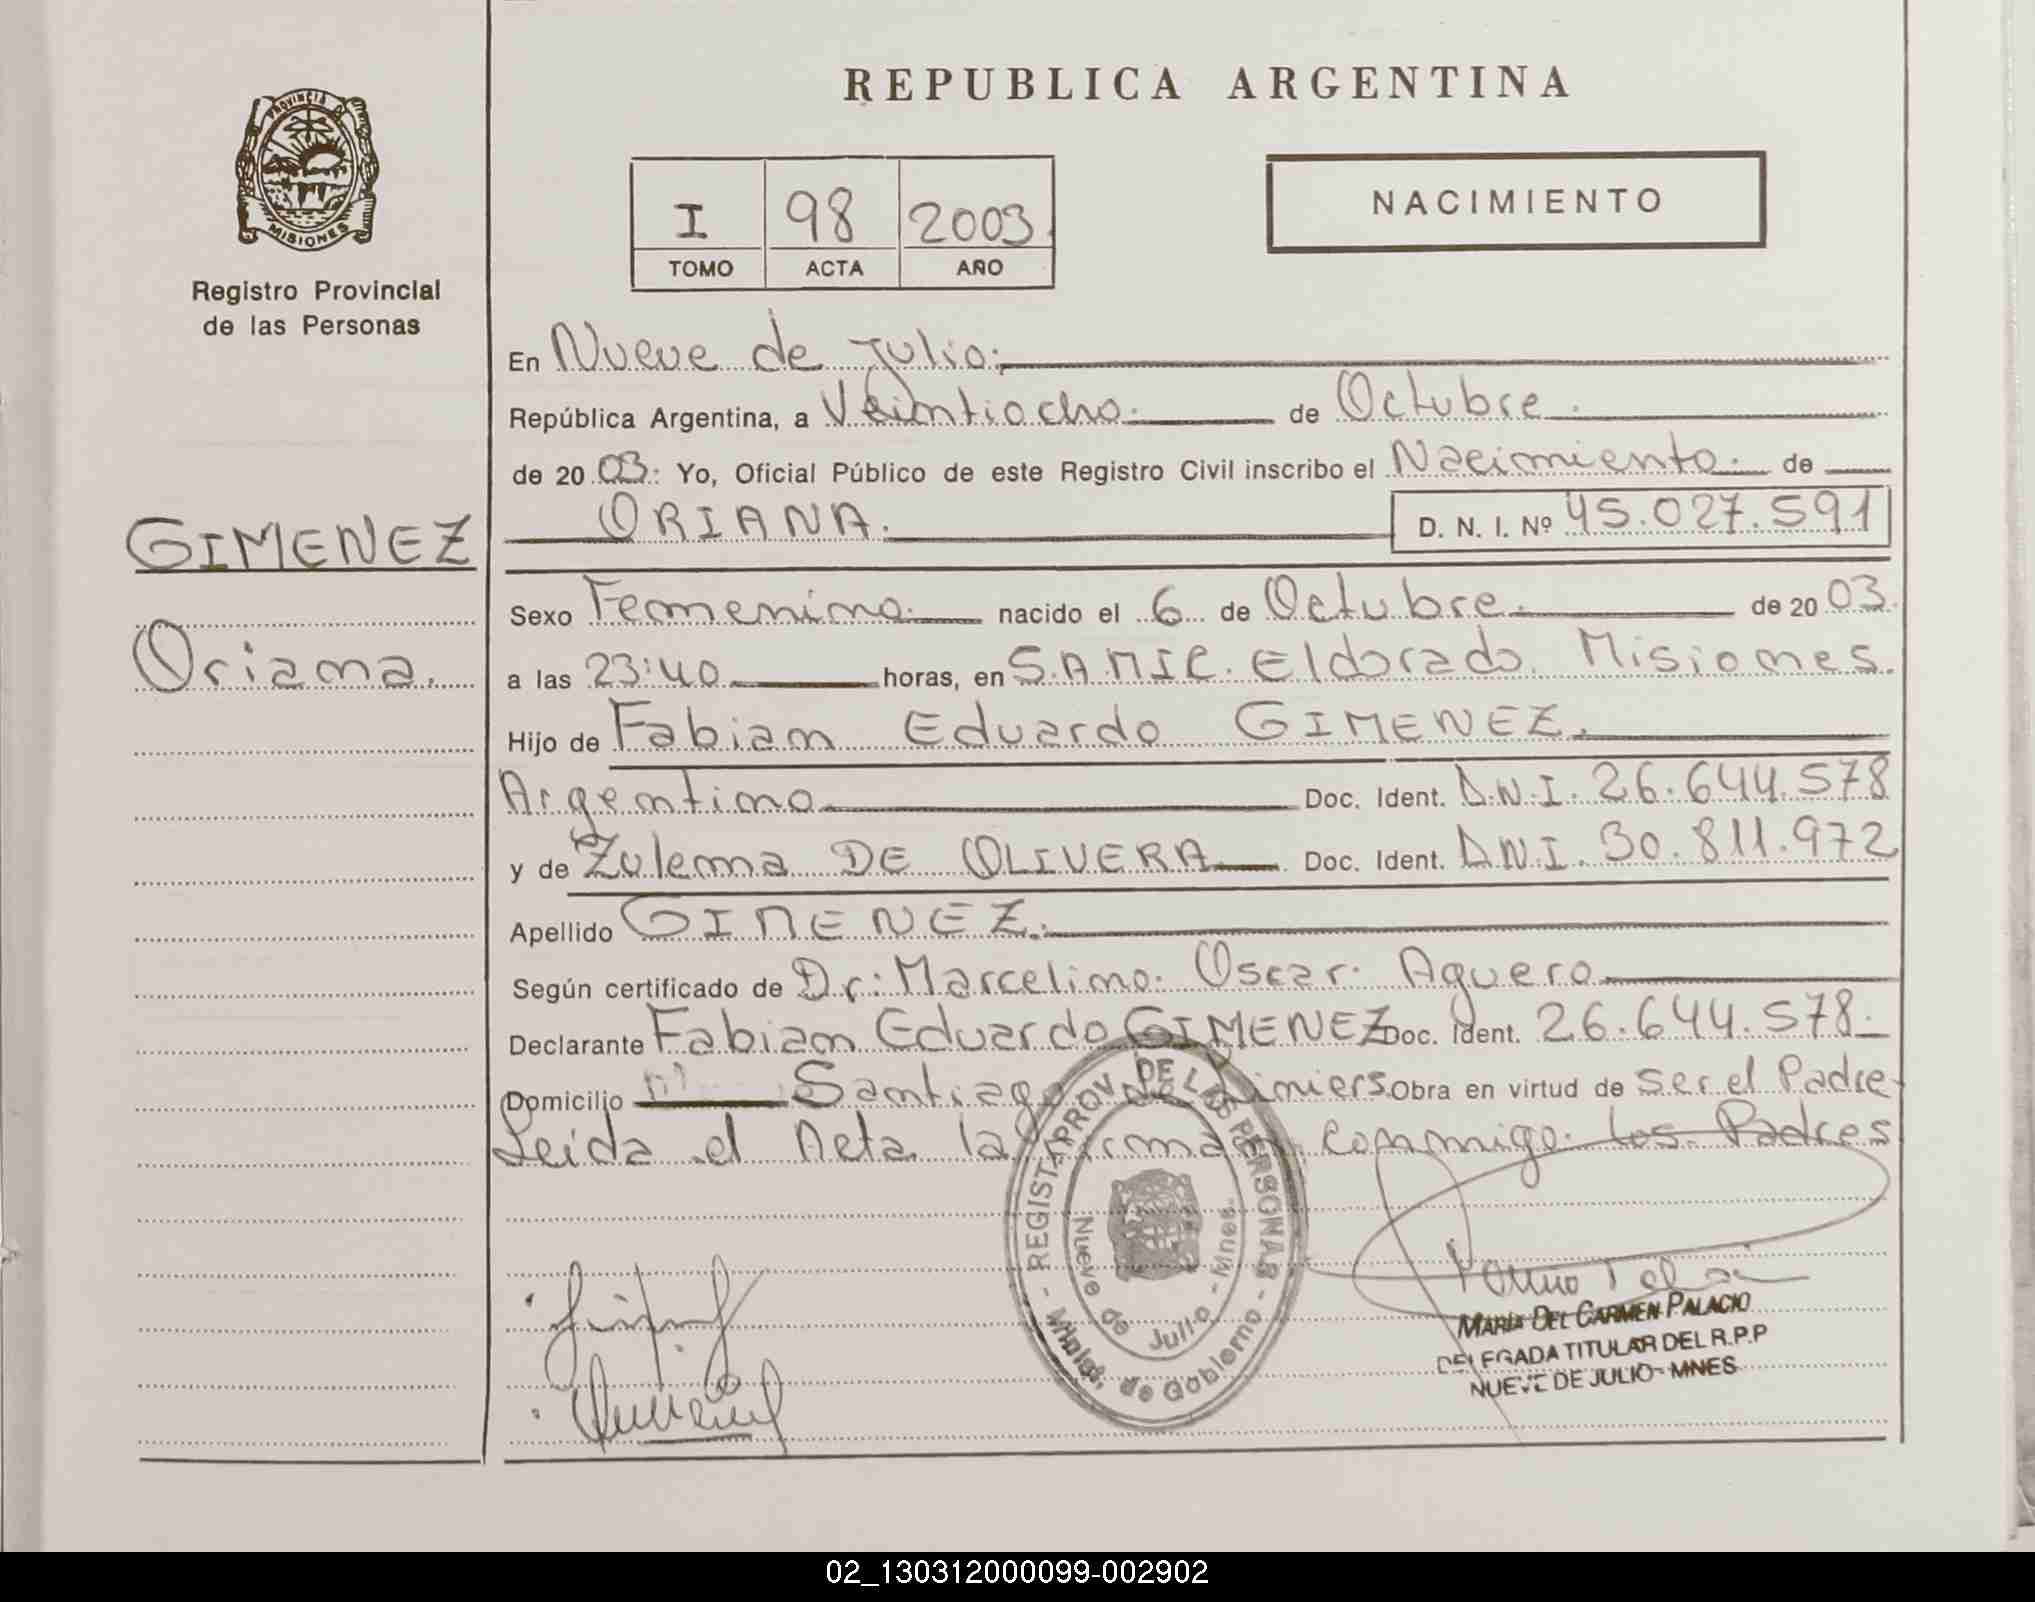 PROVINCIA DE
MISIONES
Registro Provincial
de las Personas
GIMENEZ
Oriana.
REPUBLICA ARGENTINA
I 98 2003
TOMO ACTA AÑO
NACIMIENTO
En Nueve de Julio.
República Argentina, a Veintiocho. de Octubre.
de 20 03. Yo, Oficial Público de este Registro Civil inscribo el Nacimiento. de
ORIANA. D. N. I. Nº 45.027.591
Sexo Femenino. nacido el 6 de Octubre. de 20 03.
a las 23:40 horas, en S.A.M.I.C. Eldorado. Misiones.
Hijo de Fabian Eduardo GIMENEZ.
Argentino Doc. Ident. D.N.I. 26.644.578
y de Zulema DE OLIVERA Doc. Ident. D.N.I. 30.811.972
Apellido GIMENEZ.
Según certificado de Dr: Marcelino Oscar Aguero
Declarante Fabian Eduardo GIMENEZ Doc. Ident. 26.644.578.
Domicilio Santiago de Liniers. Obra en virtud de Ser el Padre
Leida el Acta la firman conmigo los Padres
REGIST. PROV. DE LAS PERSONAS
Nueve de Julio - Mnes.
- Minist. de Gobierno -
MARIA DEL CARMEN PALACIO
DELEGADA TITULAR DEL R.P.P
NUEVE DE JULIO - MNES
02_130312000099-002902